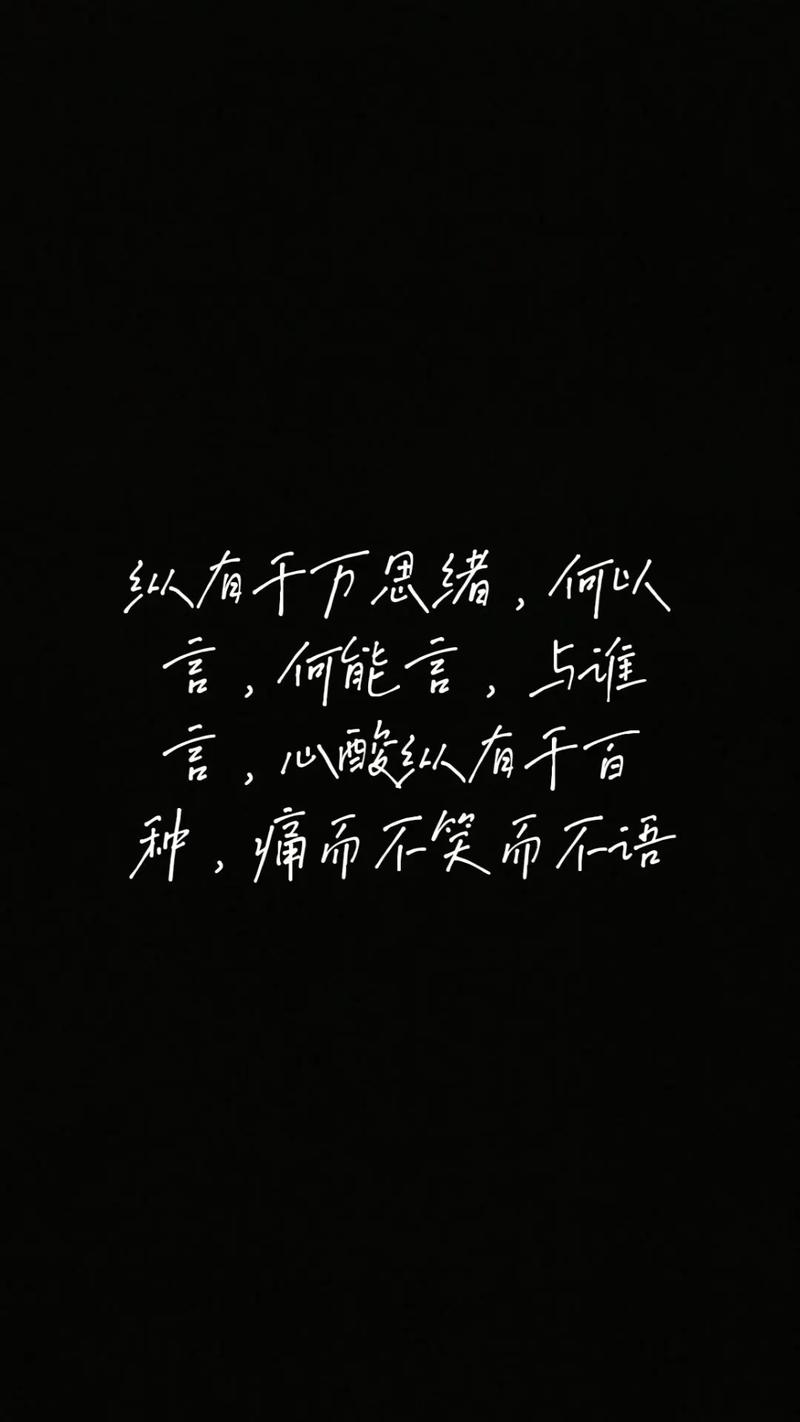 纵有千万思绪，何以
言，何能言，与谁
言，心酸纵有千百
种，痛而不笑而不语